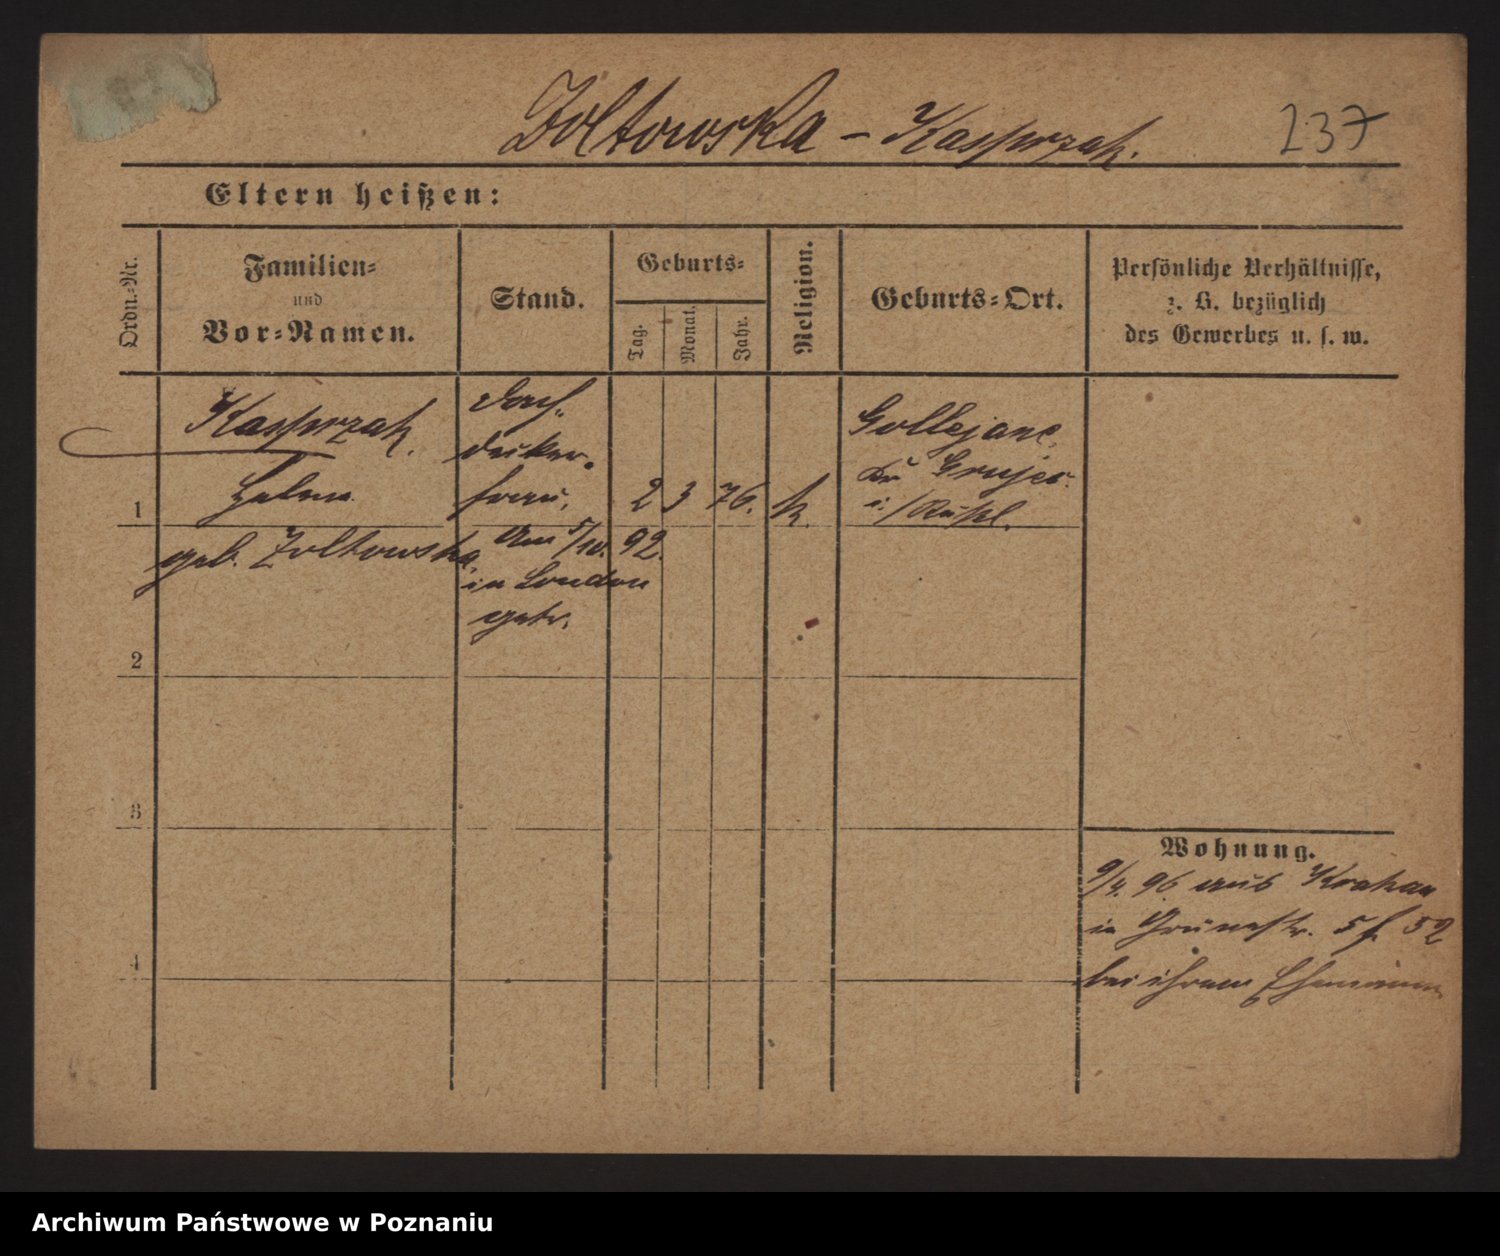 Zoltowska - Kasprzak.
237
Eltern heißen:
Ordn.-Nr.
Familien-
und
Vor-Namen.
Stand.
Geburts-
Tag.
Monat.
Jahr.
Religion.
Geburts-Ort.
Persönliche Verhältnisse,
z. B. bezüglich
des Gewerbes u. s. w.
1
Kasprzak.
Helene
geb. Zoltowska
Dach-
decker-
frau,
am 5/10. 92.
in London
getr.
2 3 76. k.
Gollejanc
Kr Grujec
i./Rußl.
2
3
4
Wohnung.
9/4. 96 aus Krakau
in Grünestr. 5 f 52
bei ihrem Ehemann
Archiwum Państwowe w Poznaniu